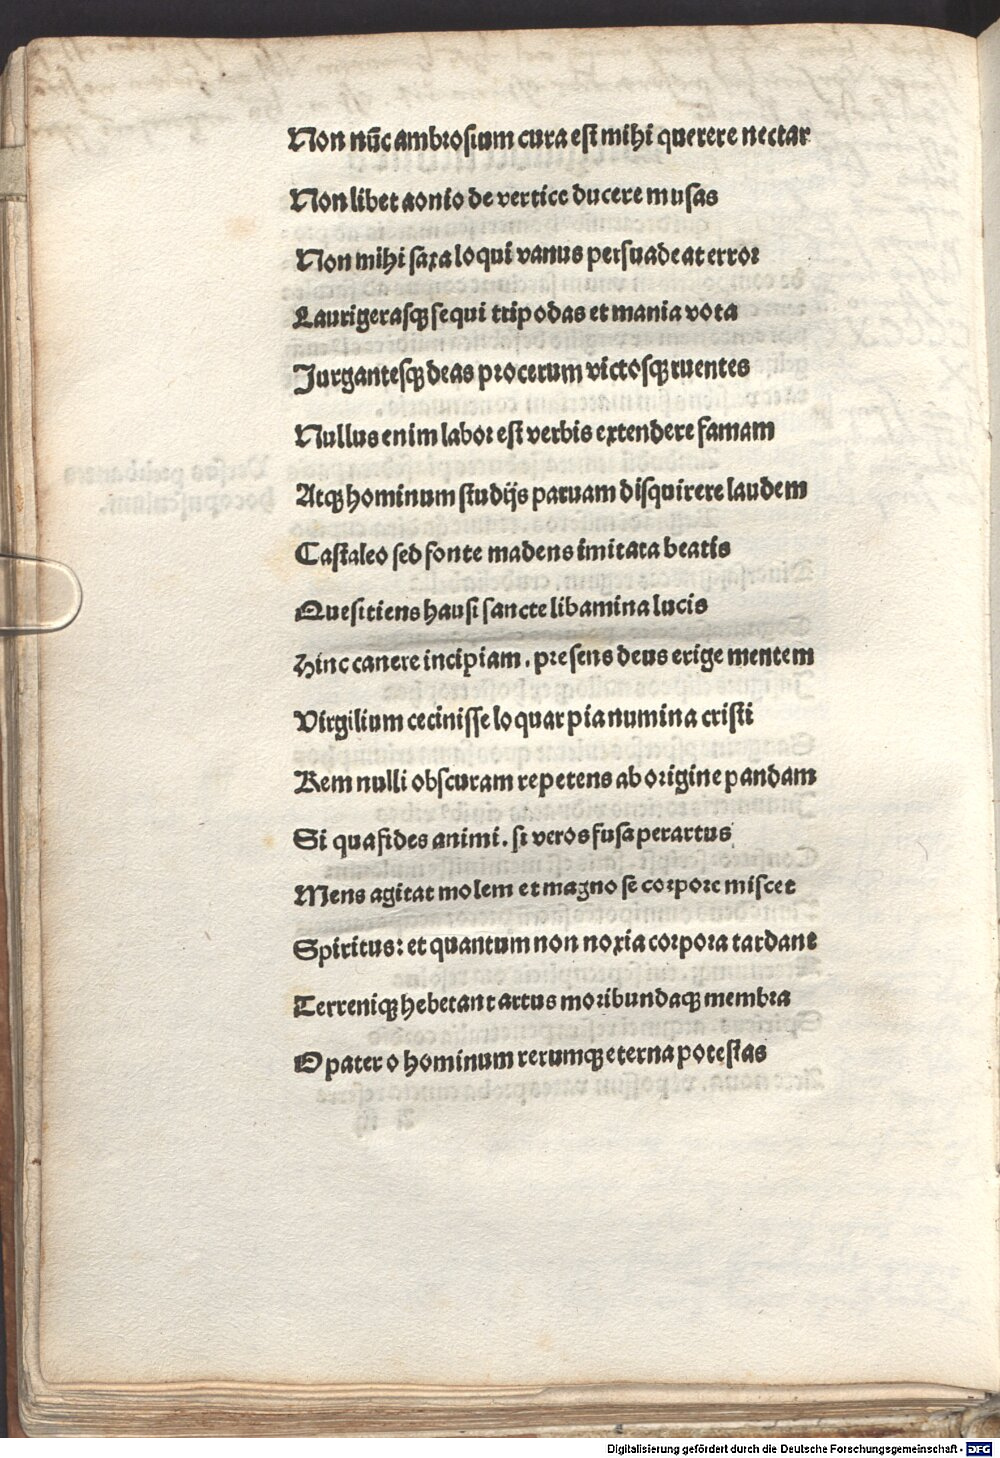 Non nūc ambrosium cura est mihi querere nectar
Non libet aonio de vertice ducere musas
Non mihi saxa loqui vanus persuadeat error
Laurigerasqꝫ sequi tripodas et mania vota
Jurgantesqꝫ deas procerum victosqꝫ ruentes
Nullus enim labor est verbis extendere famam
Atqꝫ hominum studijs paruam disquirere laudem
Castaleo sed fonte madens imitata beatis
Que sitiens hausi sancte libamina lucis
Hinc canere incipiam. presens deus erige mentem
Virgilium cecinisse loquar pia numina cristi
Rem nulli obscuram repetens ab origine pandam
Si qua fides animi. si veros fusa per artus
Mens agitat molem et magno se corpore miscet
Spiritus: et quantum non noxia corpora tardant
Terreniqꝫ hebetant artus moribundaqꝫ membra
O pater o hominum rerumqꝫ eterna potestas
Digitalisierung gefördert durch die Deutsche Forschungsgemeinschaft - DFG